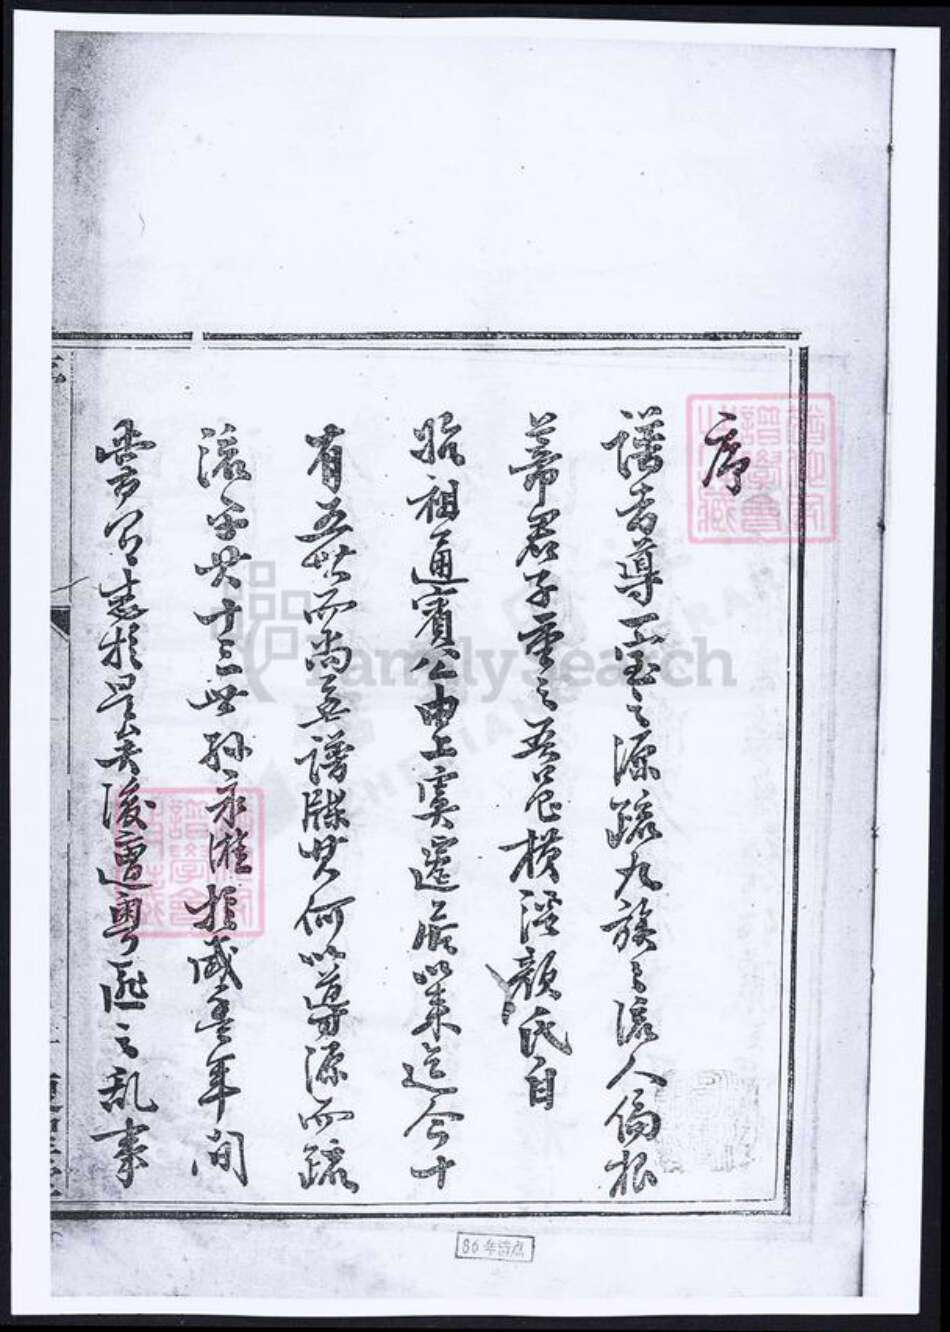 序
譜者導一宗之源疏九族之流人倫根
蒂君子重之吾邑橫涇顏氏自
始祖通賓公由上虞遷居以來迄今十
有五世而尚無譜牒其何以導源而疏
流乎共十三世孫永漋於咸豐年間
嘗有志於是矣後遭粵匪之亂事
86年普点
FamilySearch